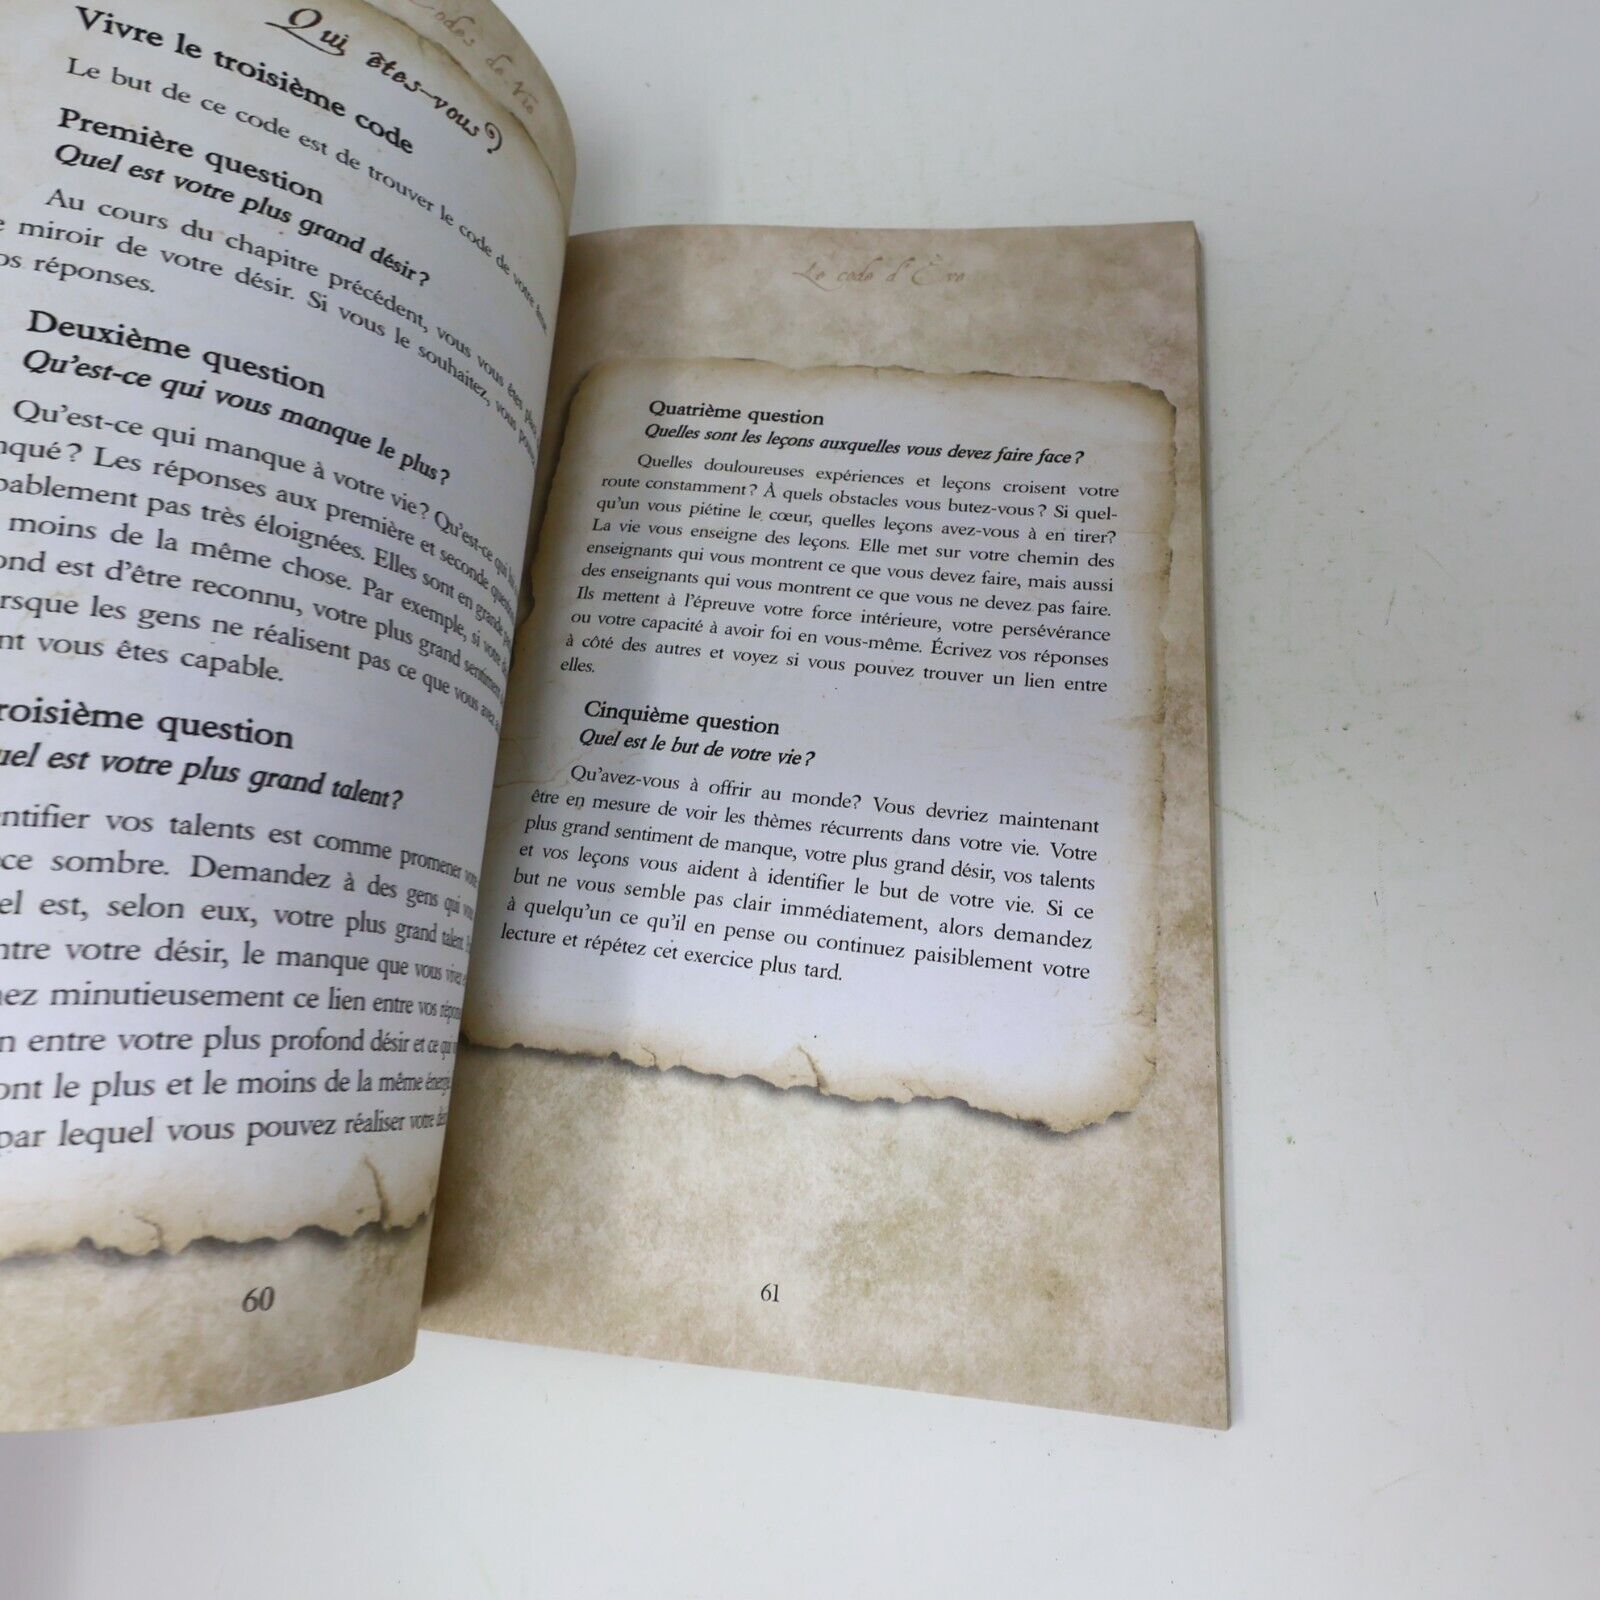 Codes de Vie
Qui êtes-vous?
Vivre le troisième code
Le but de ce code est de trouver le code de votre âme
Première question
Quel est votre plus grand désir?
Au cours du chapitre précédent, vous vous êtes plus
miroir de votre désir. Si vous le souhaitez, vous pouvez
réponses.
Deuxième question
Qu'est-ce qui vous manque le plus?
Qu'est-ce qui manque à votre vie? Qu'est-ce qui
Les réponses aux première et seconde
pas très éloignées. Elles sont en grande
moins de la même chose. Par exemple, si votre
est d'être reconnu, votre plus grand sentiment
les gens ne réalisent pas ce que vous avez
vous êtes capable.
question
est votre plus grand talent?
vos talents est comme promener votre
sombre. Demandez à des gens qui
est, selon eux, votre plus grand talent
votre désir, le manque que vous vivez
minutieusement ce lien entre vos
entre votre plus profond désir et ce qui
le plus et le moins de la même énergie
par lequel vous pouvez réaliser votre
60
Le code d'Ève
Quatrième question
Quelles sont les leçons auxquelles vous devez faire face?
Quelles douloureuses expériences et leçons croisent votre
route constamment? À quels obstacles vous butez-vous? Si quel-
qu'un vous piétine le cœur, quelles leçons avez-vous à en tirer?
La vie vous enseigne des leçons. Elle met sur votre chemin des
enseignants qui vous montrent ce que vous devez faire, mais aussi
des enseignants qui vous montrent ce que vous ne devez pas faire.
Ils mettent à l'épreuve votre force intérieure, votre persévérance
ou votre capacité à avoir foi en vous-même. Écrivez vos réponses
à côté des autres et voyez si vous pouvez trouver un lien entre
elles.
Cinquième question
Quel est le but de votre vie?
Qu'avez-vous à offrir au monde? Vous devriez maintenant
être en mesure de voir les thèmes récurrents dans votre vie. Votre
plus grand sentiment de manque, votre plus grand désir, vos talents
et vos leçons vous aident à identifier le but de votre vie. Si ce
but ne vous semble pas clair immédiatement, alors demandez
à quelqu'un ce qu'il en pense ou continuez paisiblement votre
lecture et répétez cet exercice plus tard.
61